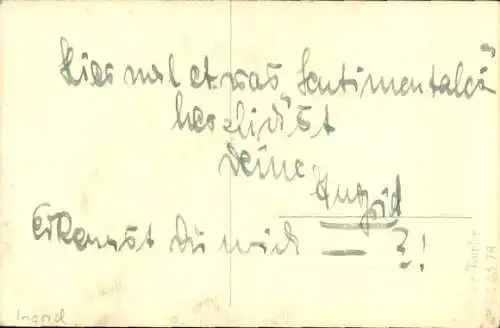 Hier mal etwas „Sentimentales"
herzlichst
Deine
Ingrid
Erkennst Du mich — ?!
Ingrid